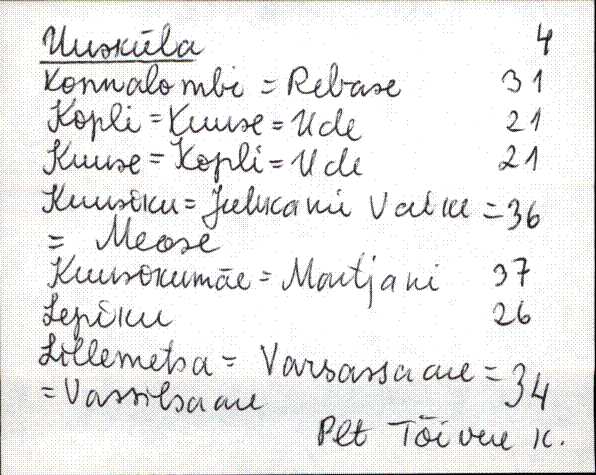 Uusküla 4
Konnalombi = Rebase 31
Kopli = Kuuse = Ude 21
Kuuse = Kopli = Ude 21
Kuusiku = Juhkani Vatku = 36
= Mäose
Kuusokumäe = Montjani 37
Lepiku 26
Lillemetsa = Varsassaare = 34
= Vassilsaare
Plt Tõivere k.